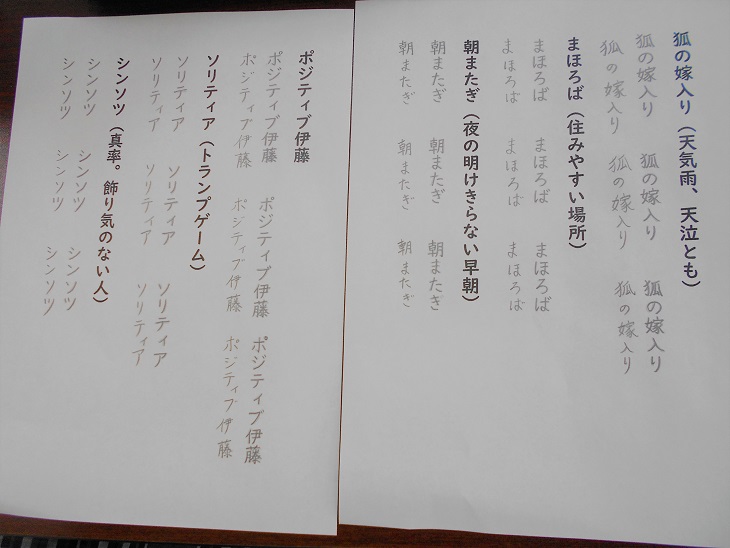 狐の嫁入り（天気雨、天泣とも）
狐の嫁入り 狐の嫁入り 狐の嫁入り
狐の嫁入り 狐の嫁入り 狐の嫁入り
まほろば（住みやすい場所）
まほろば まほろば まほろば
まほろば まほろば まほろば
朝またぎ（夜の明けきらない早朝）
朝またぎ 朝またぎ 朝またぎ
朝またぎ 朝またぎ 朝またぎ
ポジティブ伊藤
ポジティブ伊藤 ポジティブ伊藤 ポジティブ伊藤
ポジティブ伊藤 ポジティブ伊藤 ポジティブ伊藤
ソリティア（トランプゲーム）
ソリティア ソリティア ソリティア
ソリティア ソリティア ソリティア
シンソツ（真率。飾り気のない人）
シンソツ シンソツ シンソツ
シンソツ シンソツ シンソツ